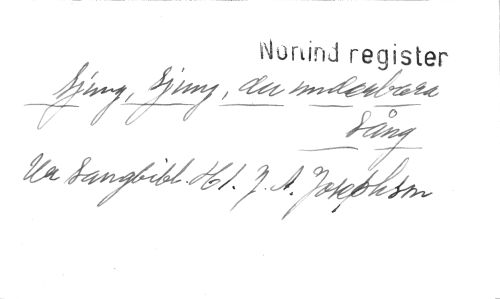 Norlind register
Sjung, sjung, du underbara
Sång
Ur Sångbibl. H 1. J. A. Josephson